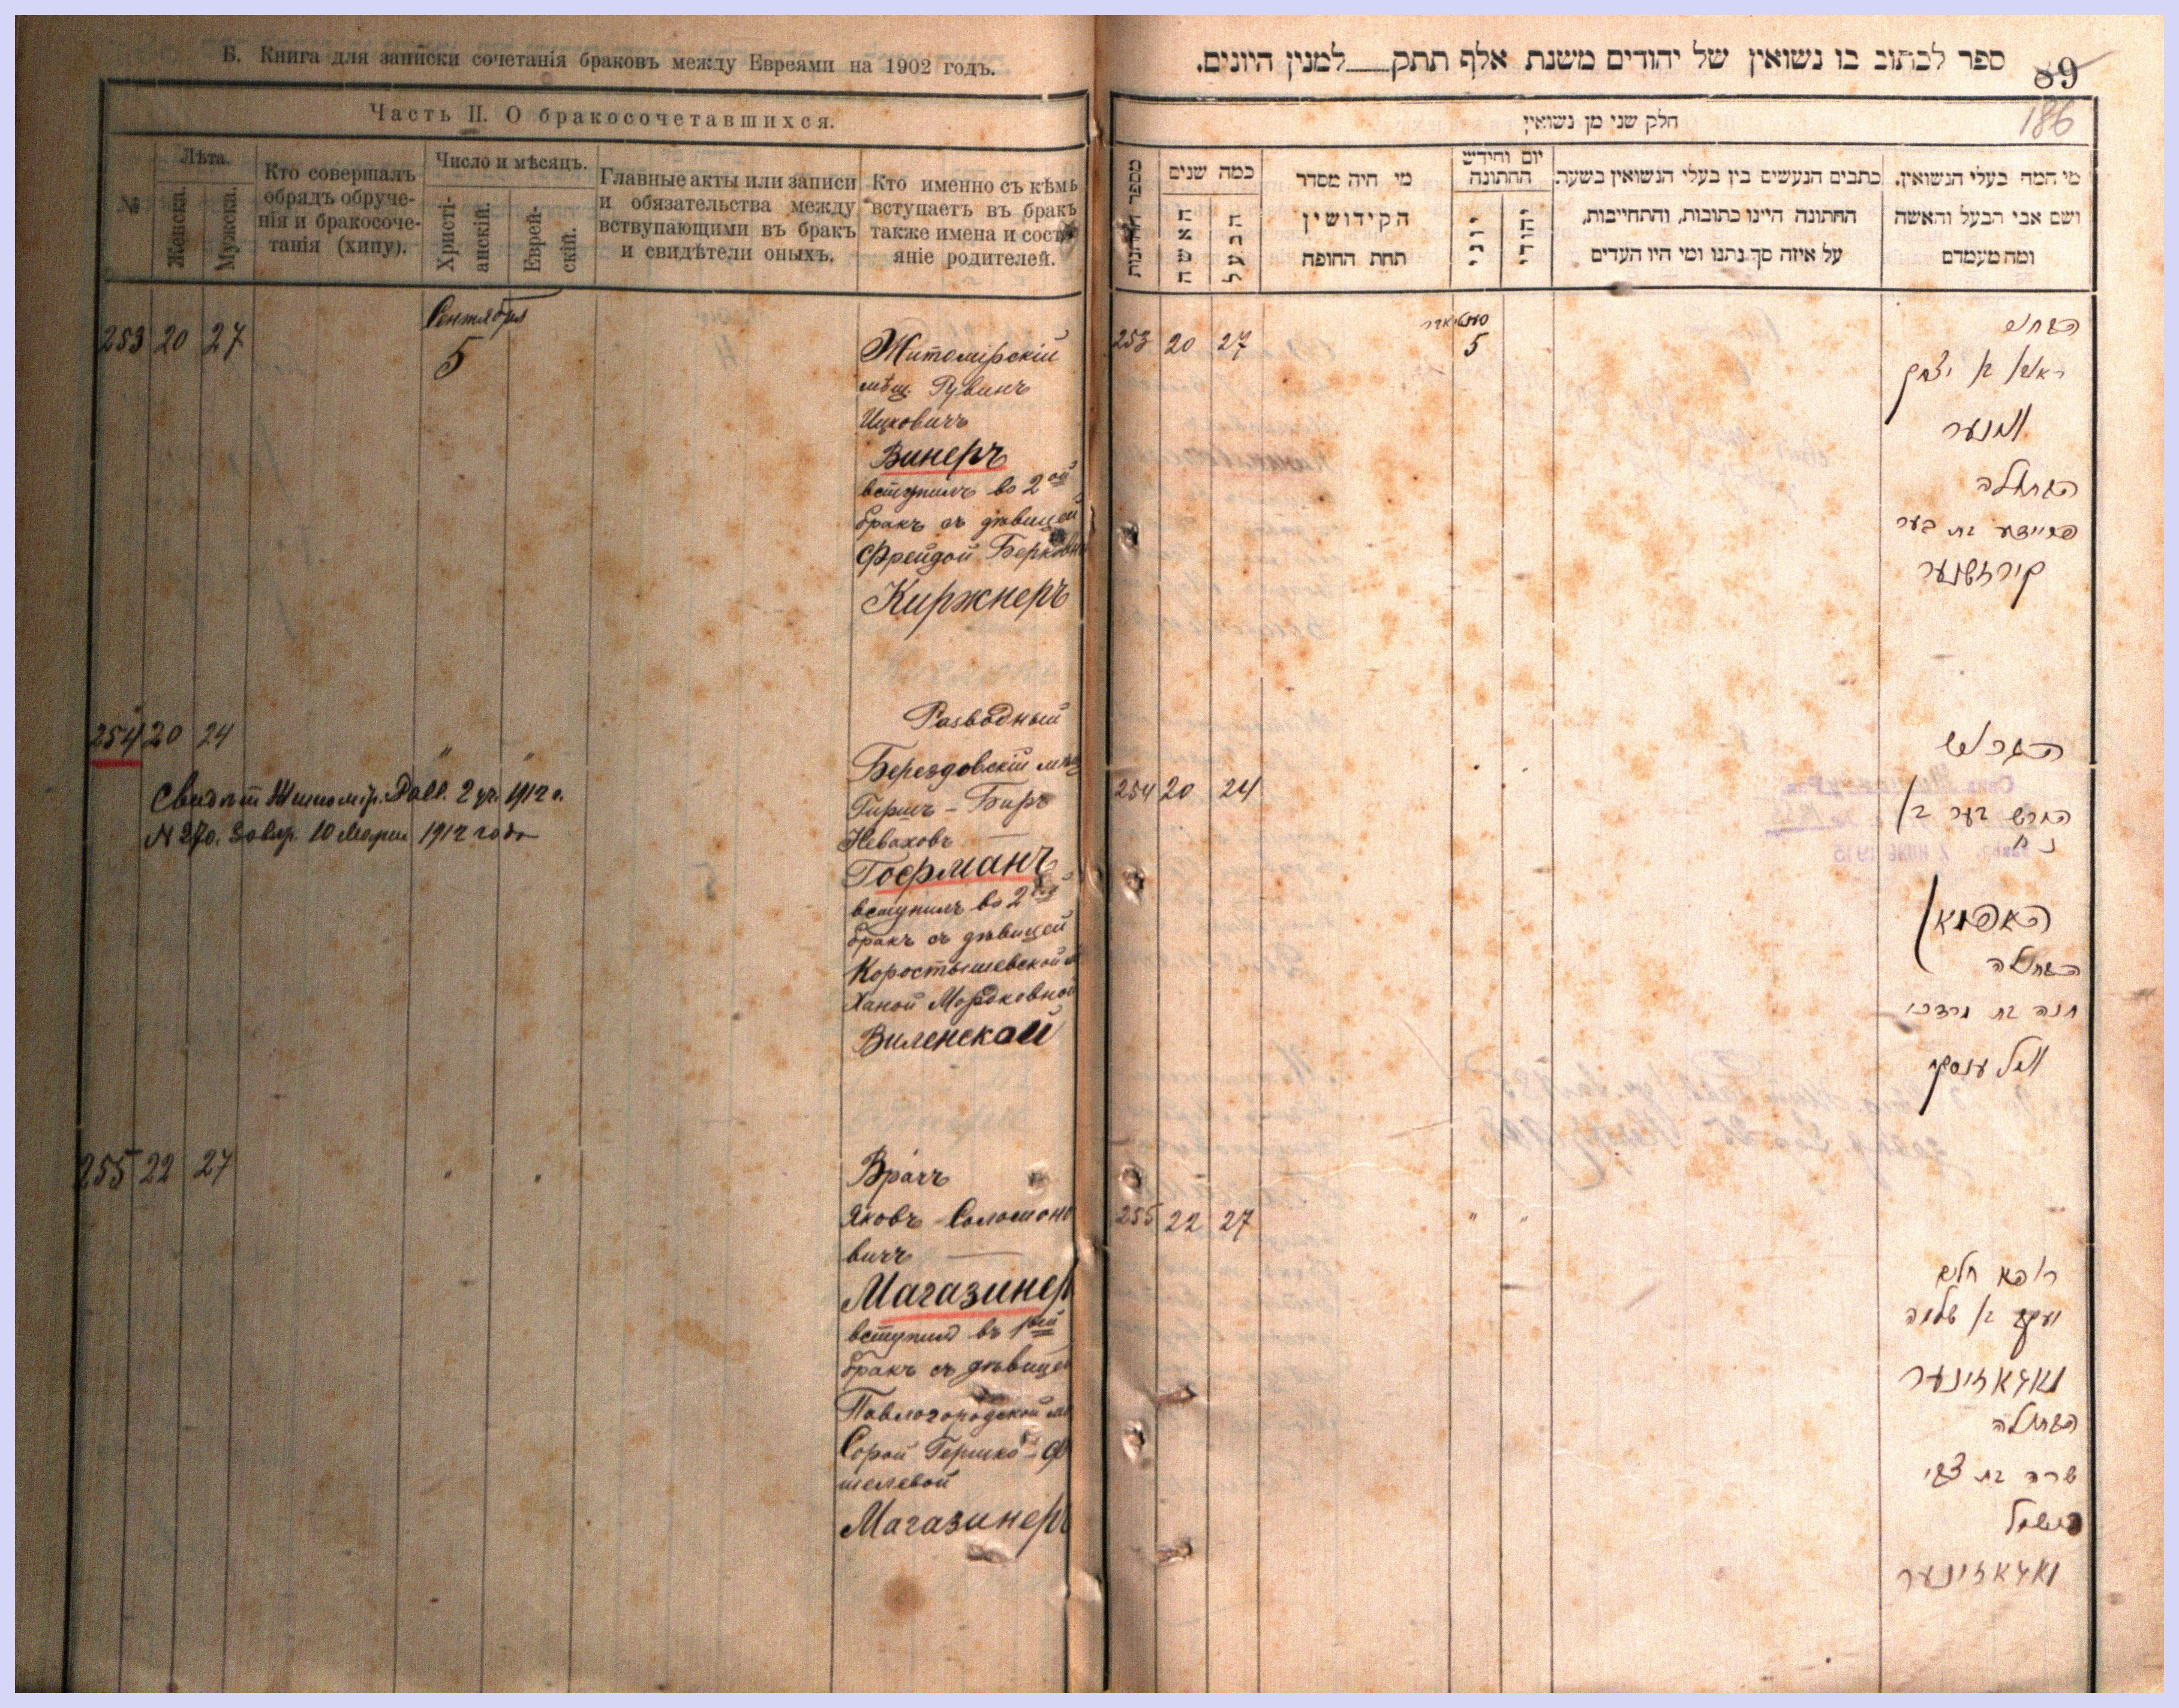 Б. Книга для записки сочетанія браковъ между Евреями на 1902 годъ.
Часть II. О бракосочетавшихся.
№
Лѣта.
Женска.
Мужска.
Кто совершалъ
обрядъ обруче-
нія и бракосоче-
танія (хипу).
Число и мѣсяцъ.
Христі-
анскій.
Еврей-
скій.
Главные акты или записи
и обязательства между
вступающими въ бракъ
и свидѣтели оныхъ.
Кто именно съ кѣмъ
вступаетъ въ бракъ
также имена и сост
яніе родителей.
Сентября
253 20 27 5
Житомірскій
мѣщ. Рувинъ
Ицковичъ
Винеръ
вступилъ во 2ой
бракъ съ дѣвицей
Фрейдой Берковн
Киржнеръ
254 20 24 " "
Разводный
Берездовскій мѣщ
Гиршъ-Беръ
Невахов
Гофманъ
вступилъ во 2ой
бракъ съ дѣвицей
Коростышевской м
Ханой Мордковной
Виленской
Свидѣт Житомір. 2 уч. 1912 г.
N 270. 10 Марта 1912 года
255 22 27 " "
Врачъ
Яковъ Соломоно
вичъ
Магазинер
вступилъ въ 1ый
бракъ съ дѣвицей
Павлогородской м
Сорой Гершко-Ф
шелевой
Магазинеръ
ספר לכתוב בו נשואין של יהודים משנת אלף תתק למנין היונים.
89
186
חלק שני מן נשואין
מספר החתונות
כמה שנים
האשה
הבעל
מי היה מסדר
הקידושין
תחת החופה
יום וחידש
החתונה
יוני
יהודי
כתבים הנעשים בין בעלי הנשואין בשעת
החתונה היינו כתובות, והתחייבות,
על איזה סך נתנו ומי היו העדים
מי המה בעלי הנשואין,
ושם אבי הבעל והאשה
ומה מעמדם
253 20 27 5
הבחור
ראובן בן יצחק
ווינער
הבתולה
פריידע בת בער
קירזשנער
254 20 24
הגרוש
הירש בער בן
נח
האפמאן
הבתולה
חנה בת מרדכי
ווילענסקי
255 22 27 " "
רופא חולים
יעקב בן שלמה
מאגאזינער
הבתולה
שרה בת צבי
פישל
מאגאזינער